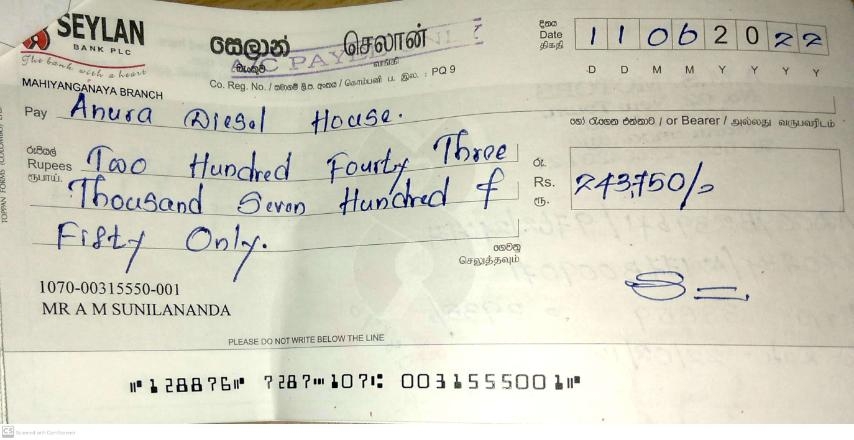 SEYLAN
BANK PLC
The bank with a heart
සෙලාන්
බැංකුව
செலான்
வங்கி
A/C PAYEE ONLY
Co. Reg. No. / සමාගම් ලි.ප. අංකය / கொம்பனி ப. இல. : PQ 9
දිනය
Date
திகதி
11 06 2022
D D M M Y Y Y Y
MAHIYANGANAYA BRANCH
Pay Anura Diesel House.
හෝ රැගෙන එන්නාට / or Bearer / அல்லது வருபவரிடம்
රුපියල්
Rupees Two Hundred Fourty Three
ரூபாய்
Thousand Seven Hundred &
Fifty Only.
රු.
Rs. 243,750/=
ரூ.
ගෙවනු
செலுத்தவும்
1070-00315550-001
MR A M SUNILANANDA
PLEASE DO NOT WRITE BELOW THE LINE
⑈128876⑈ 7287⑉107⑆ 003155500 1⑈
CS Scanned with CamScanner